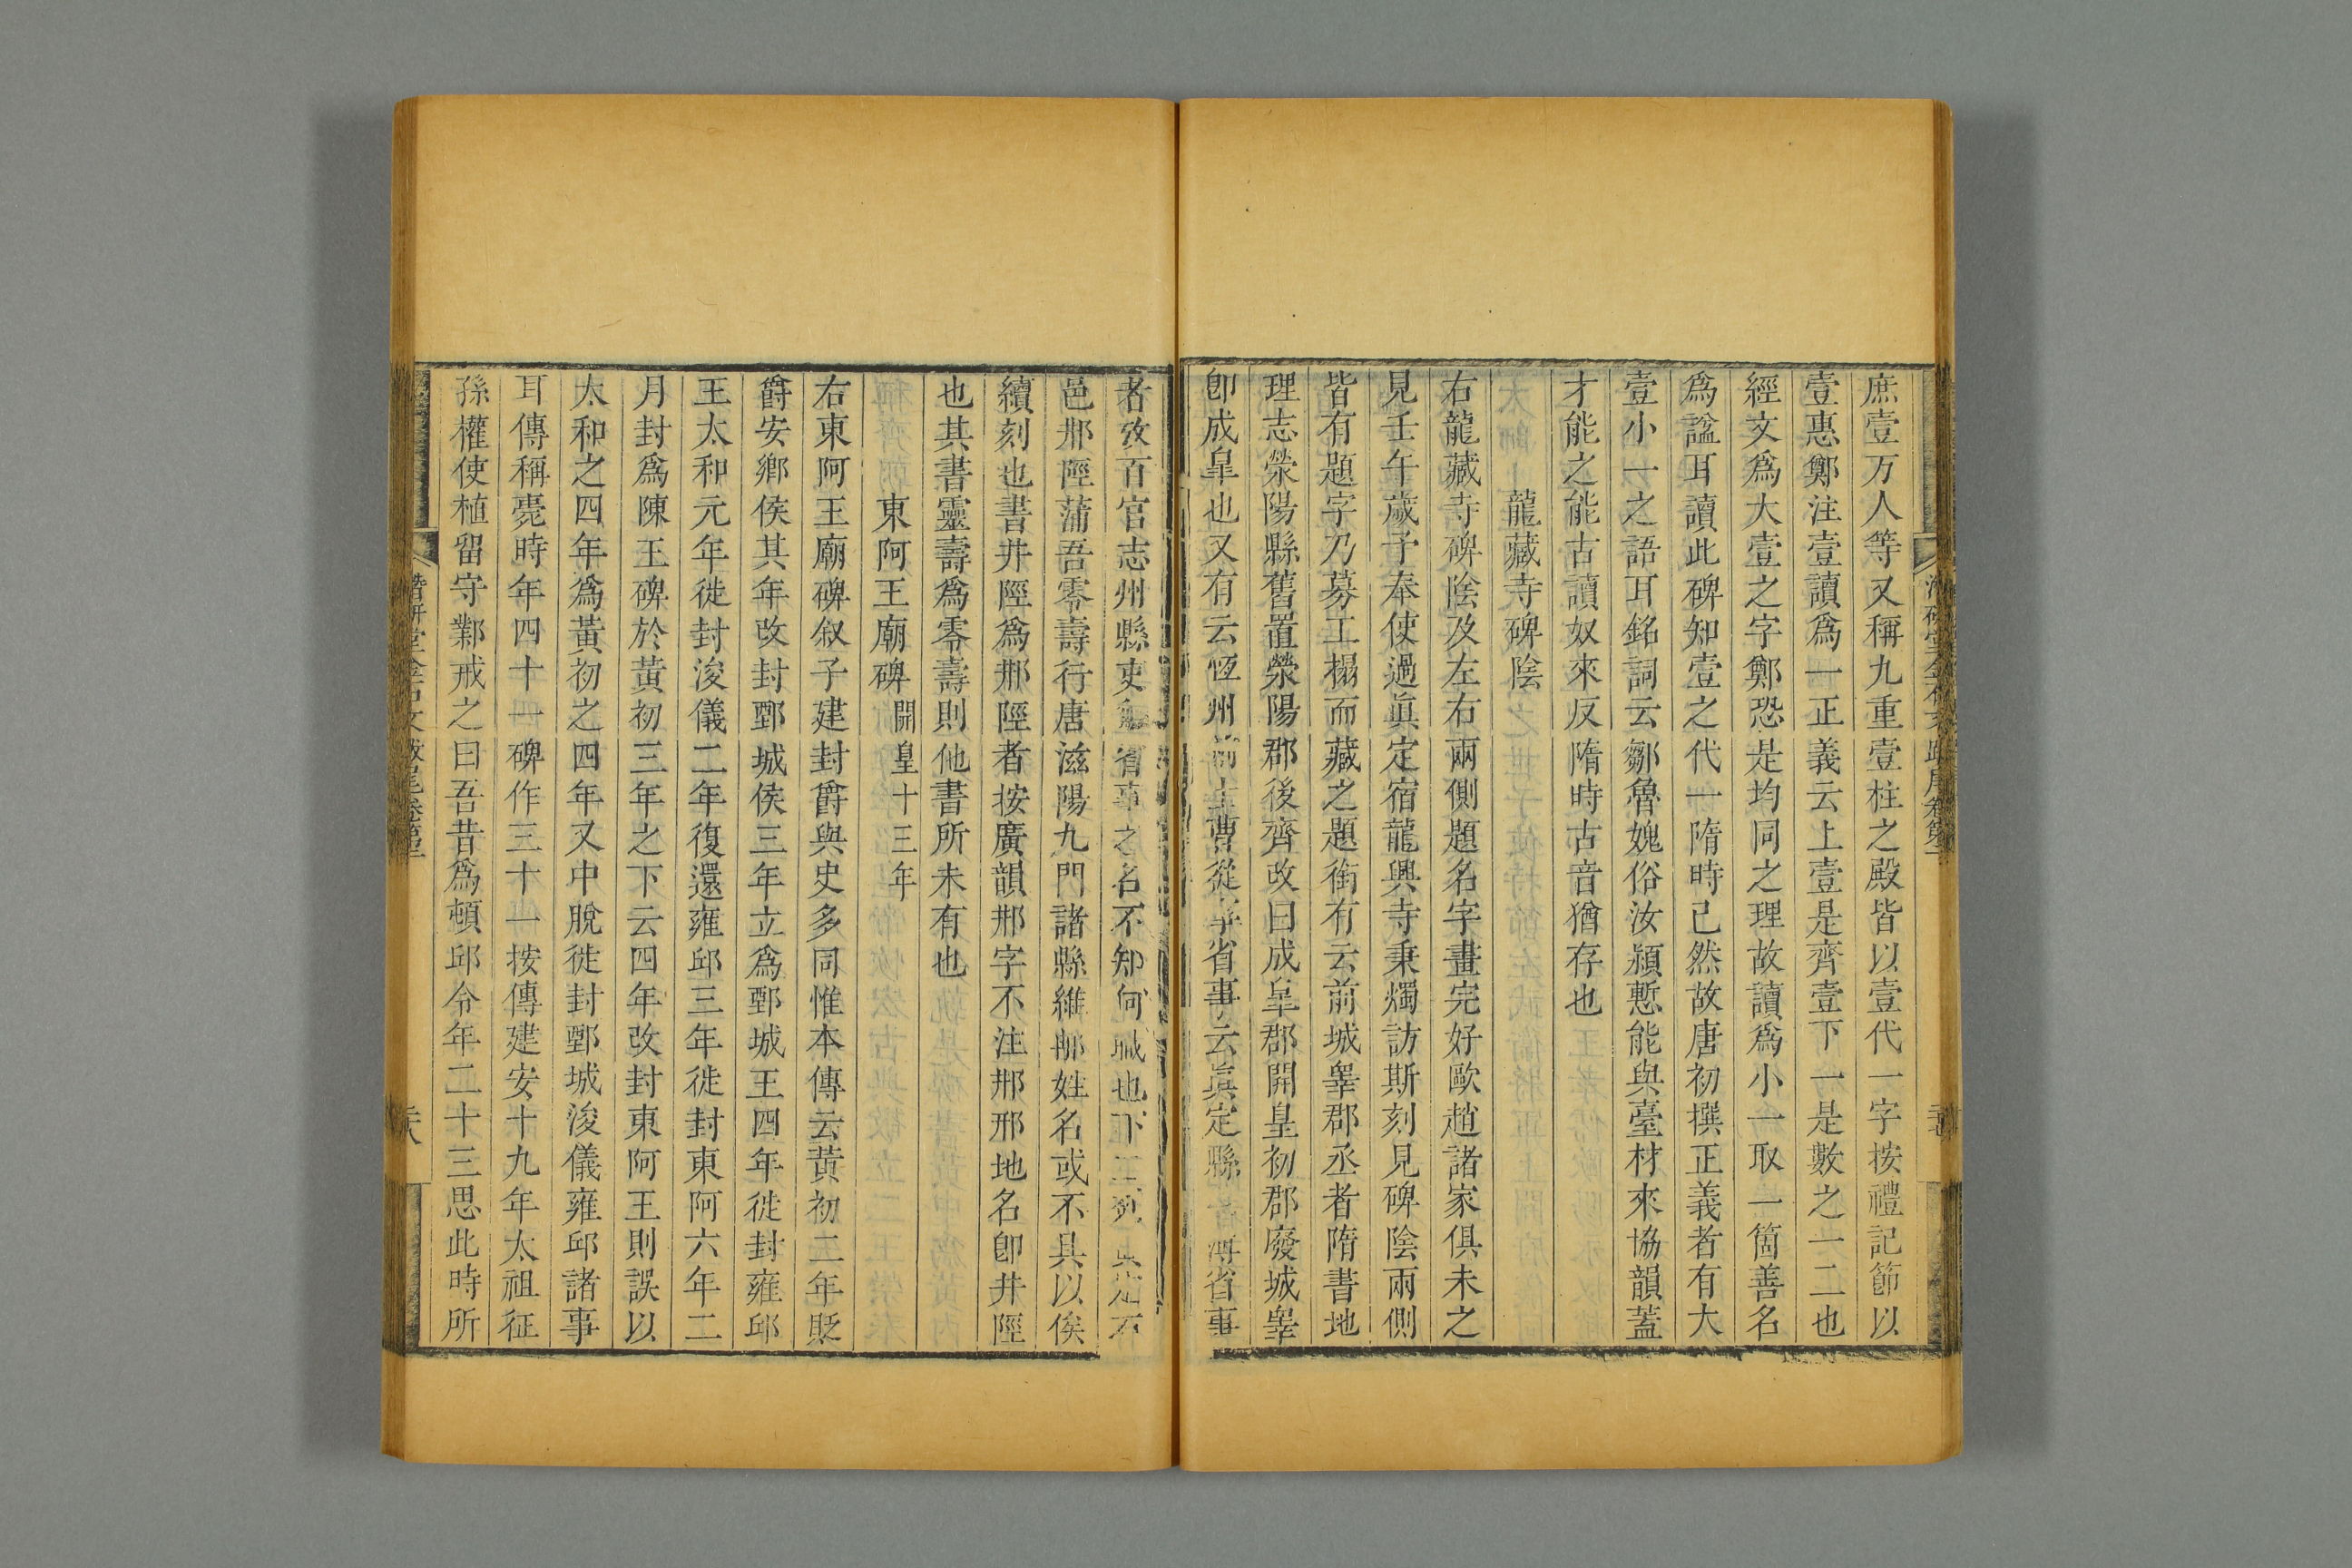 庶壹万人等又稱九重壹柱之殿皆以壹代一字按禮記節以
壹惠鄭注壹讀爲一正義云上壹是齊壹下一是數之一二也
經文爲大壹之字鄭恐是均同之理故讀爲小一取一箇善名
爲謚耳讀此碑知壹之代一隋時已然故唐初撰正義者有大
壹小一之語耳銘詞云鄒魯媿俗汝潁慙能與臺材來協韻蓋
才能之能古讀奴來反隋時古音猶存也
龍藏寺碑陰
右龍藏寺碑陰及左右兩側題名字畫完好歐趙諸家俱未之
見壬午歲予奉使過眞定宿龍興寺秉燭訪斯刻見碑陰兩側
皆有題字乃募工榻而藏之題銜有云前城皋郡丞者隋書地
理志滎陽縣舊置滎陽郡後齊改曰成皐郡開皇初郡廢城皋
卽成皐也又有云恆州前士曹從事省事云眞定縣省事
者攷百官志州縣吏省事之名不知何職也下
邑邢陘蒲吾零壽行唐滋陽九門諸縣維那姓名或不具以俟
續刻也書井陘爲邢陘者按廣韻邢字不注邢邢地名卽井陘
也其書靈壽爲零壽則他書所未有也
東阿王廟碑 開皇十三年
右東阿王廟碑叙子建封爵與史多同惟本傳云黃初二年貶
爵安鄉侯其年改封鄄城侯三年立爲鄄城王四年徙封雍邱
王太和元年徙封浚儀二年復還雍邱三年徙封東阿六年二
月封爲陳王碑於黃初三年之下云四年改封東阿王則誤以
太和之四年爲黃初之四年又中脫徙封鄄城浚儀雍邱諸事
耳傳稱薨時年四十一碑作三十一按傳建安十九年太祖征
孫權使植留守鄴戒之曰吾昔爲頓邱令年二十三思此時所
潛研堂金石文跋尾卷第三